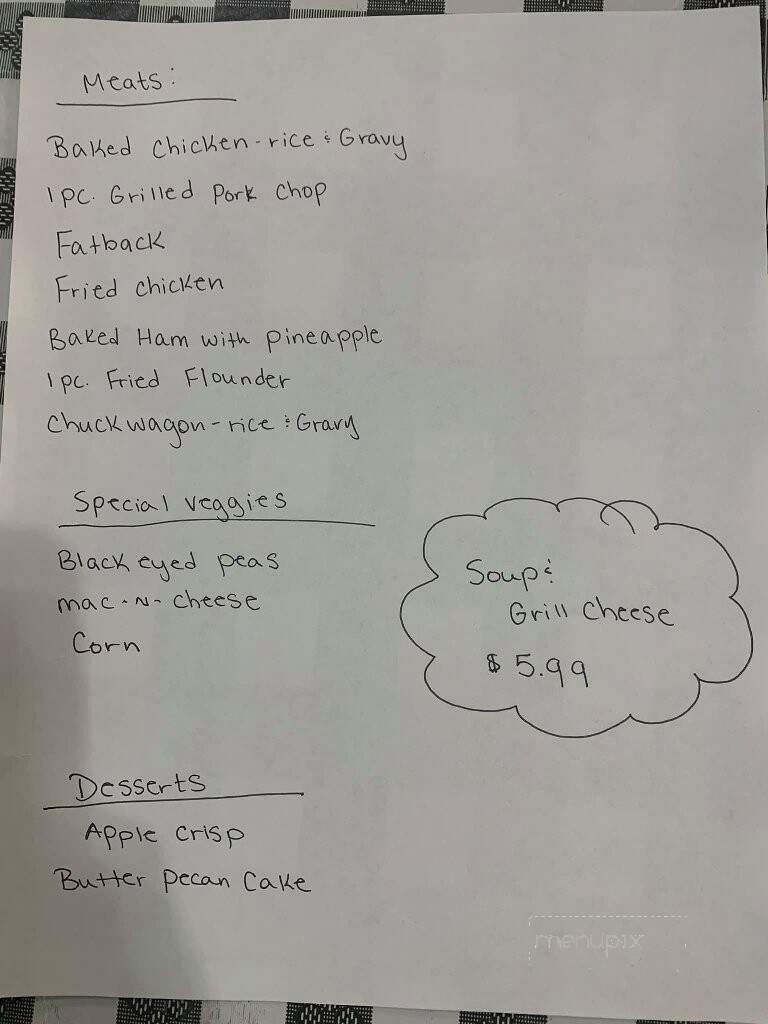 Meats:
Baked chicken - rice & Gravy
1 pc. Grilled Pork chop
Fatback
Fried chicken
Baked Ham with pineapple
1 pc. Fried Flounder
Chuckwagon - rice & Gravy
Special veggies
Black eyed peas
mac-N-cheese
Corn
Soup &
Grill Cheese
$5.99
Desserts
Apple crisp
Butter pecan Cake
menupix